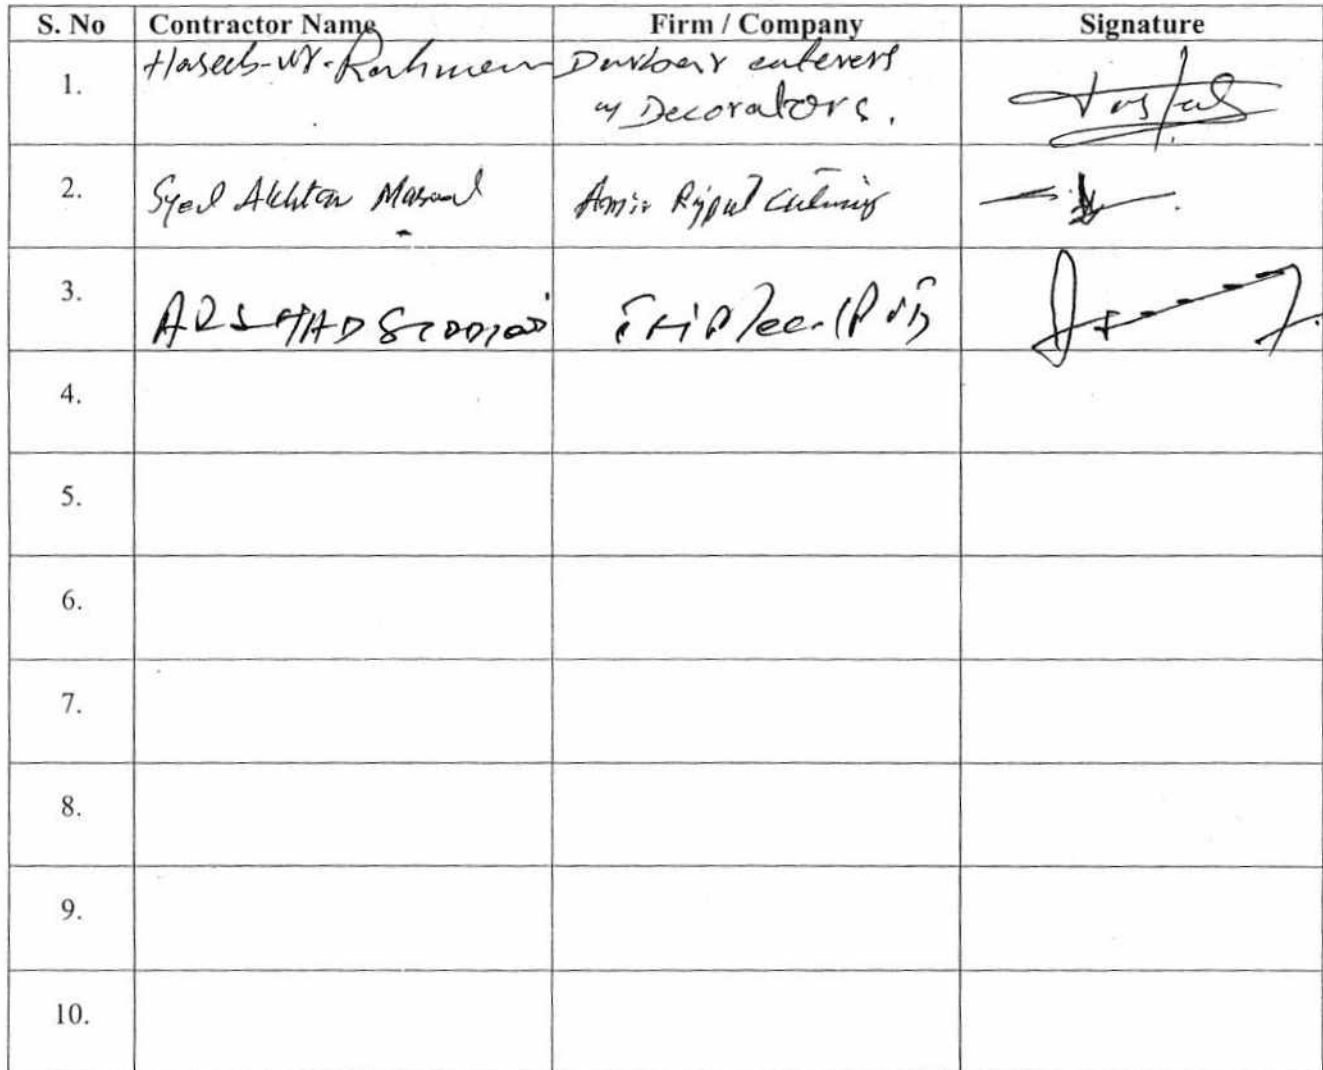 S. No Contractor Name Firm / Company Signature
1. Haseeb-ur-Rahman Durbar caterers
Decorators.
2. Syed Akhtar Masood Amir Rajput Catering
3. ARSHAD SIDDIQUI
4.
5.
6.
7.
8.
9.
10.